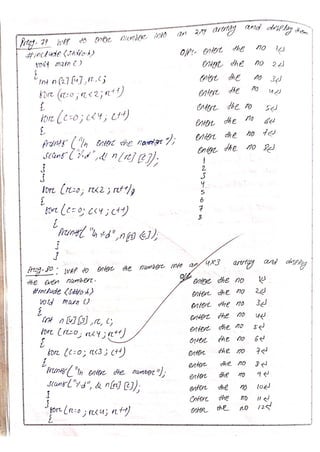 Prog. 29 WAP to enter number into an 2x4 array and display them
#include <stdio.h>
void main ()
{
int n [2] [4], r, c;
for (r=0; r<2; r++)
{
for (c=0; c<4; c++)
{
printf ("\n enter the number");
scanf ("%d", & n [r] [c]);
}
}
for (r=0; r<2; r++)
{
for (c=0; c<4; c++)
{
printf ("\n %d", n[r] [c]);
}
}
O/P:- enter the no 1
enter the no 2
enter the no 3
enter the no 4
enter the no 5
enter the no 6
enter the no 7
enter the no 8
1
2
3
4
5
6
7
8
Prog. 30: WAP to enter the number into an 4x3 array and display
the even number.
#include <stdio.h>
void main ()
{
int n [4] [3], r, c;
for (r=0; r<4; r++)
{
for (c=0; r<3; c++)
{
printf ("\n enter the number");
scanf ("%d", & n[r] [c]);
}
}
for (r=0; r<4; r++)
{
O/P
enter the no 1
enter the no 2
enter the no 3
enter the no 4
enter the no 5
enter the no 6
enter the no 7
enter the no 8
enter the no 9
enter the no 10
enter the no 11
enter the no 12